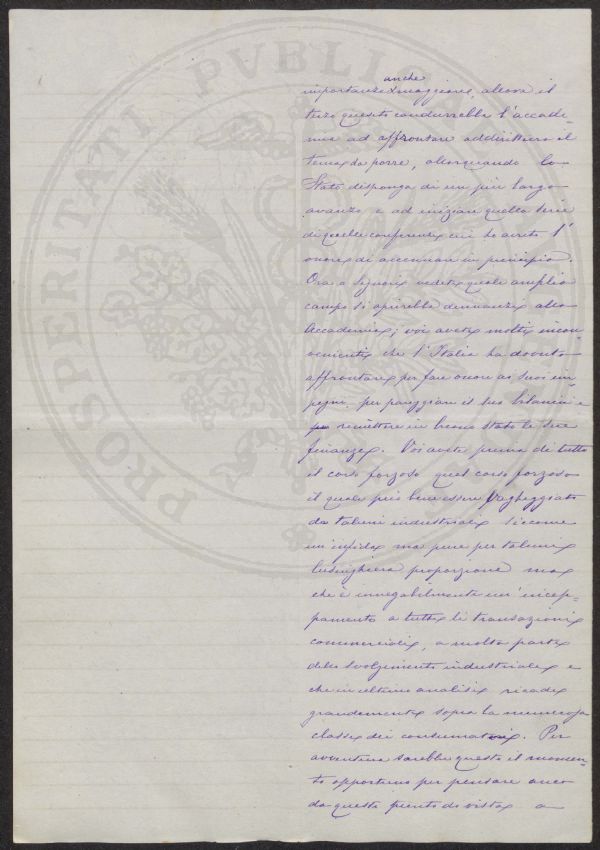 PROSPERITATI PVBLICAE
anche
importanza maggiore, allora il
terzo quesito condurrebbe l'accade-
mia ad affrontare addirittura il
tema da porre, allorquando lo
Stato disponga di un più largo
avanzo e ad iniziare quella serie
di quelle conferenze cui ho avuto l'
onore di accennare in principio.
Ora o Signori vedete quale amplio
campo si aprirebbe dinnanzi alla
Accademia; voi avete molti incon-
venienti che l'Italia ha dovuto
affrontare per fare onore ai suoi im-
pegni per pareggiare il suo bilancio e
per rimettere in buono stato le sue
finanze. Voi avete prima di tutto
il corso forzoso quel corso forzoso
il quale può bene essere vagheggiato
da taluni industriali siccome
un'infida ma pure per taluni
lusinghiera proporzione ma
che è innegabilmente un'incep-
pamento a tutte le transazioni
commerciali, a molta parte
dello svolgimento industriale e
che in ultima analisi ricade
grandemente sopra la numerosa
classe dei consumatori. Per
avventura sarebbe questo il momen-
to opportuno per pensare anco
da questo punto di vista a